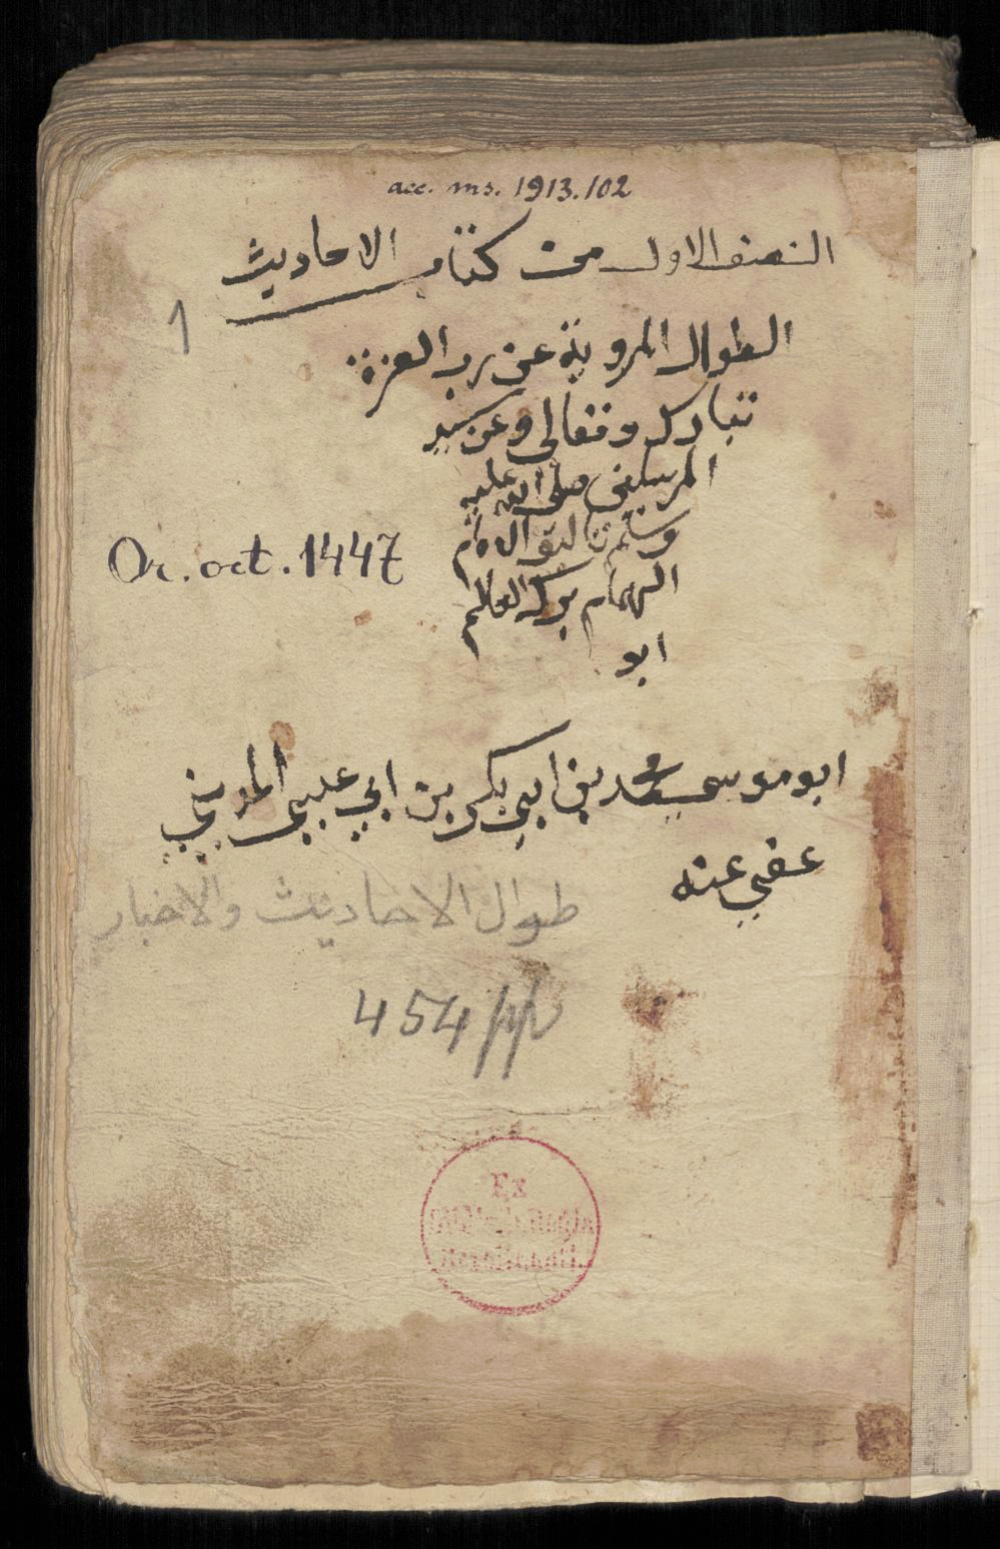 acc. ms. 1913.102
النصف الاول من كتاب الاحاديث
1
الطوال المروية عن رب العزة
تبارك وتعالى وعن سيد
المرسلين صلى الله عليه
وسلم تاليف الامام
الهمام بركة العالم
Or. oct. 1447
ابو
ابو موسى محمد بن ابي بكر بن ابي عيسى المديني
عفي عنه
طوال الاحاديث والاخبار
454 pp
Ex
Regia
Berolinensi.